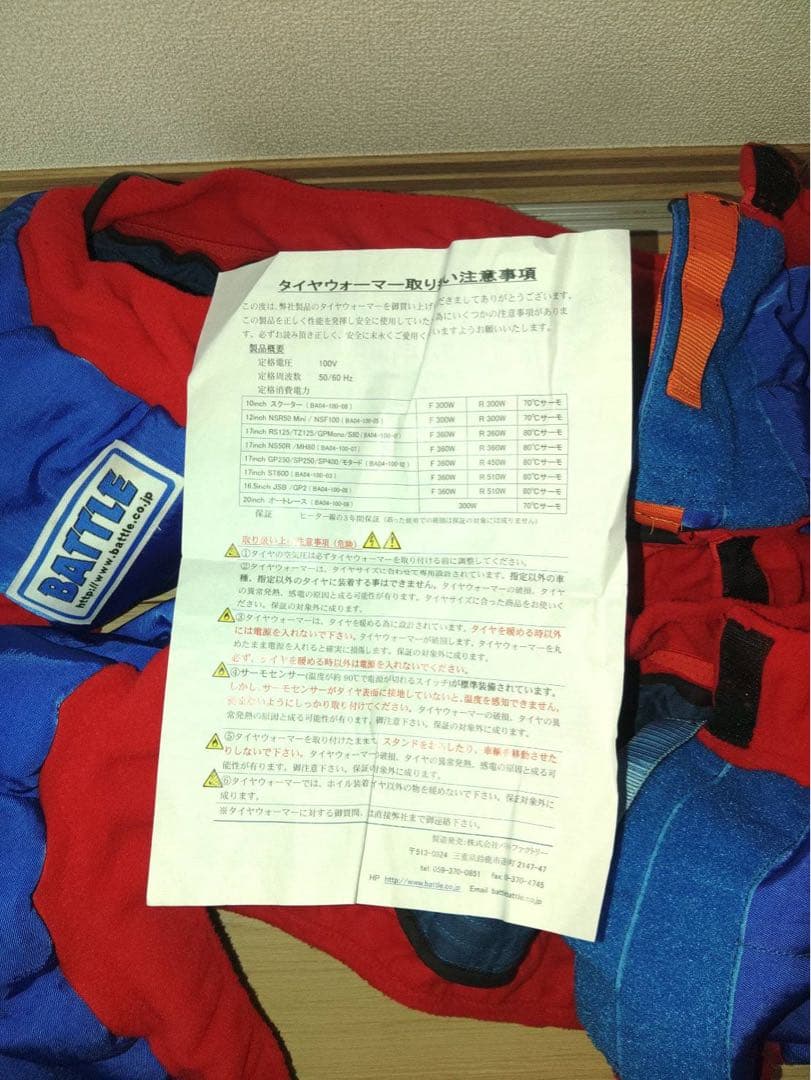 タイヤウォーマー取り い注意事項
この度は、弊社製品のタイヤウォーマーを御買い上げ だきましてありがとうございます。
この製品を正しく性能を発揮し安全に使用していた 為にいくつかの注意事項がありま
す。必ずお読み頂き正しく、安全に末永くご愛用く いますようお願いいたします。
製品概要
定格電圧 100V
定格周波数 50/60 Hz
定格消費電力
10inch スクーター (BA04-100-08) F 300W R 300W 70℃サーモ
12inch NSR50 Mini / NSF100 (BA04-100-05) F 300W R 300W 70℃サーモ
17inch RS125/TZ125/GPMono/S80 (BA04-100- F 360W R 360W 80℃サーモ
17inch NS50R /MH80 (BA04-100-07) F 360W R 360W 80℃サーモ
17inch GP250/SP250/SP400/モタード (BA04-100-02) F 360W R 450W 80℃サーモ
17inch ST600 (BA04-100-03) F 360W R 510W 80℃サーモ
16.5inch JSB /GP2 F 360W R 510W 80℃サーモ
20inch オートレース 300W 70℃サーモ
保証 ヒーター線の3年間保証 (誤った使用での破損は保証の対象には成りません)
取り扱い上 注意事項 (危険)
①タイヤの空気圧は必ずタイヤウォーマーを取り付ける前に調整してください。
②タイヤウォーマーは、タイヤサイズに合わせて専用設計されています。指定以外の車
種、指定以外のタイヤに装着する事はできません。タイヤウォーマーの破損、タイヤ
の異常発熱、感電の原因と成る可能性が有ります。タイヤサイズに合った商品をお使いく
ださい。保証の対象外に成ります。
③タイヤウォーマーは、タイヤを暖める為に設計されています。タイヤを暖める時以外
には電源を入れないで下さい。タイヤウォーマーが破損します。タイヤウォーマーを丸
めたまま電源を入れると確実に損傷します。保証の対象外に成ります。
必ず、タイヤを暖める時以外は電源を入れないでください。
④サーモセンサー(温度が約 90℃で電源が切れるスイッチ)が標準装備されています。
しかし、サーモセンサーがタイヤ表面に接地していないと、温度を感知できません。
ないようにしっかり取り付けてください。タイヤウォーマーの破損、タイヤの異
常発熱の原因と成る可能性が有ります。御注意下さい。保証の対象外に成ります。
⑤タイヤウォーマーを取り付けたままで、スタンドを したり、車輌を移動させた
りしないで下さい。タイヤウォーマー 破損、タイヤの異常発熱、感電の原因と成る可
能性が有ります。御注意下さい。保証の対象外に成ります。
⑥タイヤウォーマーでは、ホイル装着 イヤ以外の物を暖めないで下さい。保証対象外に
成ります。
※タイヤウォーマーに対する御質問 は直接弊社まで御連絡下さい。
製造発売:株式会社 ファクトリー
〒513-0824 三重県鈴鹿市道 町 2147-47
tel 059-370-0851 fax 9-370-4745
HP http://www.battle.co.jp Email
BATTLE
http://www.battle.co.jp